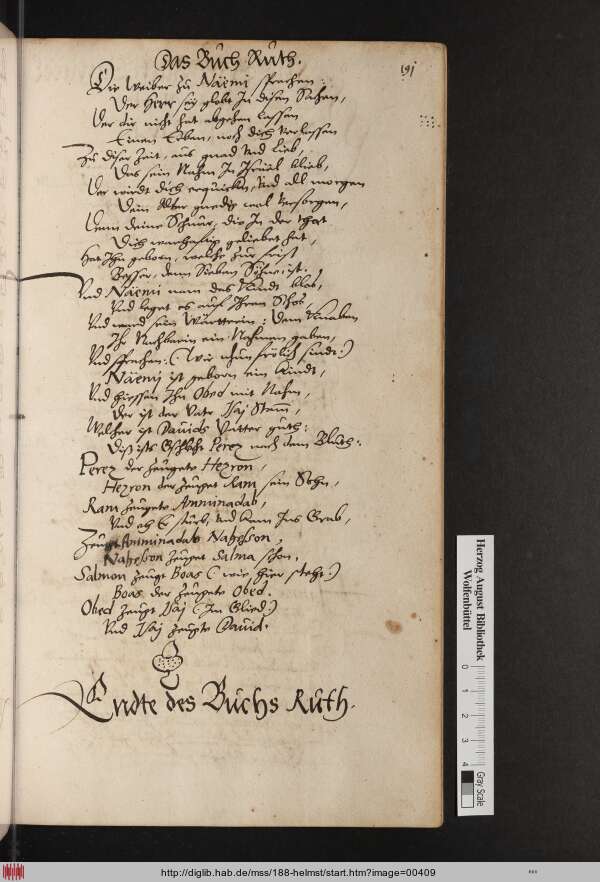 Das Buch Ruth.
191
Die Weiber zu Naemi sprachen:
Der Herr sey globt In disen Sachen,
Der dir nicht hat abgehen lassen
Einen Erben, noch dich verlassen
Zu diser Zeit, aus gnad und Lieb,
Das sein Nahm In Israel blieb,
Der wirdt dich erquicken, und all morgen
Dein Alter gnedig wol versorgen,
Denn deine Schnur, die In der That
Dich geliebet hat,
Hat Ihn geborn, welche zur frist
Besser, denn Sieben Söhne ist.
Und Naemi nam das Kindt blos,
Und leget es auf Ihren Schos,
Und ward sein Wärtterin: Dem Knaben
Ihr Nachbarin ein Nahmen gaben,
Und sprachen: (wir nhun frölich sindt:)
Naemi ist geborn ein Kindt,
Und hiessen Ihn Obed mit Nahm,
Der ist der Vatr Isaj Stam,
Welcher ist Davids Vatter guth:
Diß ists Gschlecht Perez nach dem Bluth:
Perez der zeugete Hezron,
Hezron der zeuget Ram sein Sohn,
Ram zeugete Amminadab,
Und eh Er sturb, und kam Ins Grab,
Zeugt Amminadab Nahesson,
Nahesson zeuget Salma schon.
Salmon zeugt Boas (wie hier steht:)
Boas der zeugete Obed.
Obed zeugt Isaj (Im Glied:)
Und Isaj zeugte David.
Endte des Buchs Ruth.
Herzog August Bibliothek
Wolfenbüttel
0 1 2 3 4
Gray Scale
http://diglib.hab.de/mss/188-helmst/start.htm?image=00409